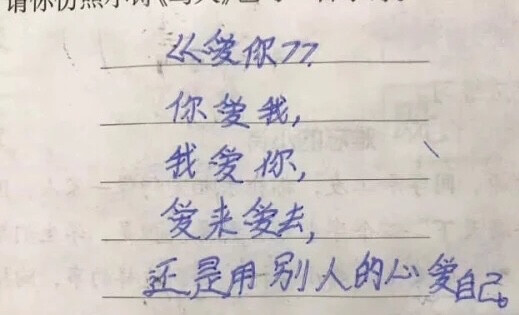 请你仿照小诗
《爱你》
你爱我,
我爱你,
爱来爱去,
还是用别人的心爱自己。